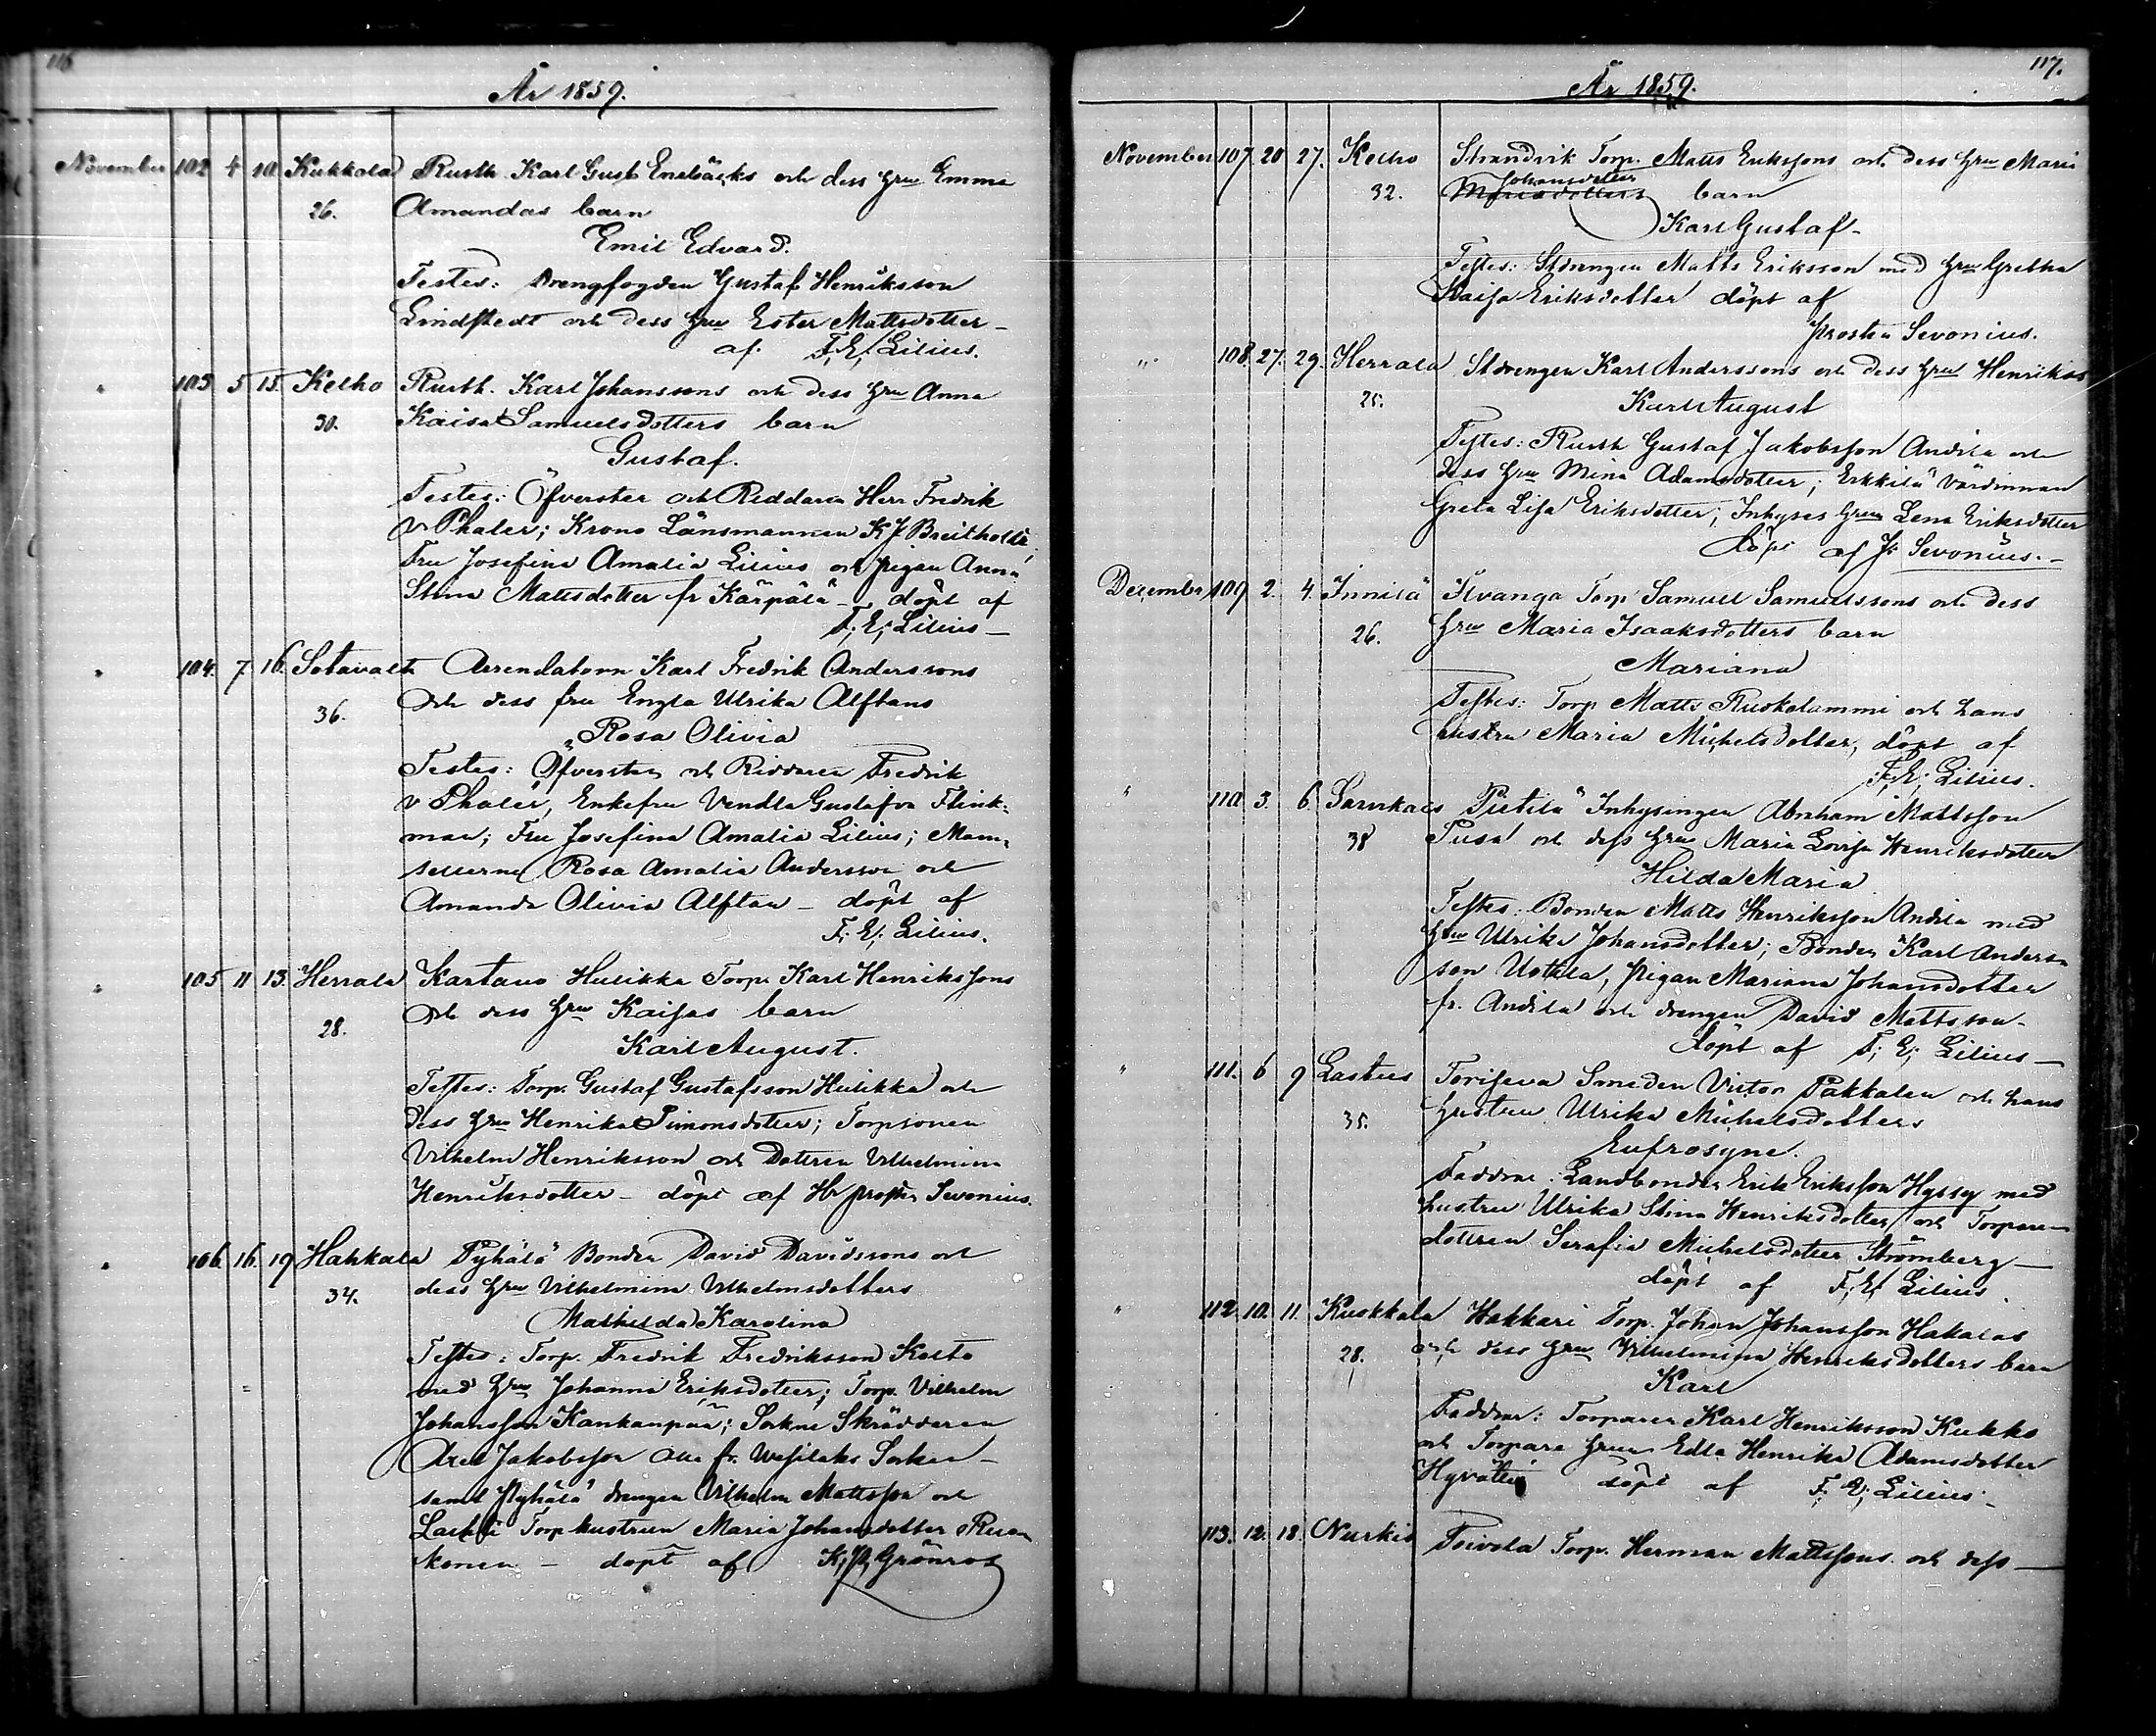 116
År 1859.
November 102 4 10. Kukkola Rusth. Karl Gust Enebäcks och dess hru Emma
26. Amandas barn
Emil Edvard.
Testes: Drengfogden Gustaf Henriksson
Lindstedt och dess hru Ester Mattsdotter –
af. F. E. Lilius.
" 103 5 15. Kelho Rusth. Karl Johanssons och dess hru Anna
30. Kaisa Samuelsdotters barn
Gustaf.
Testes: Öfverster och Riddaren Herr Fredrik
v Phaler; Krono Länsmannen K J Breitholtz;
Fru Josefina Amalia Lilius och pigan Anna
Stina Mattsdotter fr Kärpälä – döpt af
F. E; Lilius –
" 104. 7. 16. Sotavalta Arrendatorn Karl Fredrik Anderssons
36. och dess fru Engla Ulrika Alftans
Rosa Olivia
Testes: Öfversten och Riddaren Fredrik
v Phaler, Enkefru Vendla Gustafva Flink-
man; Fru Josefina Amalia Lilius; Mam-
sellerna Rosa Amalia Andersson och
Amanda Olivia Alftan – döpt af
F. E; Lilius.
" 105 11 13. Herrala Kartano Hulikka Torp. Karl Henrikssons
28. och dess hru Kaisas barn
Karl August.
Testes: Torp. Gustaf Gustafsson Hulikka och
dess hru Henrika Simonsdotter; Torpsonen
Vilhelm Henriksson och Dottren Vilhelmina
Henriksdotter – döpt af Hr prosten Sevonius.
" 106. 16. 19 Hakkala Pyhälä Bonden David Davidssons och
34. dess hru Vilhelmina Vilhelmsdotters
Mathilda Karolina
Testes: Torp. Fredrik Fredriksson Kolto
med hru Johanna Eriksdotter; Torp. Vilhelm
Johansson Kankanpää; Sockne Skräddaren
Jakobsson fr. Wesilaks Socken –
samt Pyhälä drengen Vilhelm Mattsson och
Torp hustrun Maria Johansdotter
– döpt af K. J. Grönroos
117.
År 1859.
November 107. 20 27. Kelho Strandvik Torp. Matts Erikssons och dess hru Maria
Johansdotter
32. barn
Karl Gustaf –
Testes: Stdrengen Matts Eriksson med hru Gretha
Kaisa Eriksdotter döpt af
prosten Sevonius.
" 108. 27. 29. Herrala Stdrengen Karl Anderssons och dess hru Henrikas
25. Karl August
Testes: Rusth Gustaf Jakobsson Andila och
dess hru Mina Adamsdotter; Erkkilä värdinnan
Greta Lisa Eriksdotter; Inhyses hrun Lena Eriksdotter
döpt af J: Sevonius. –
December 109 2. 4. Innilä Ilvanga Torp Samuel Samuelssons och dess
26. hru Maria Isaaksdotters barn
Mariana
Testes: Torp Matts Ruokolammi och hans
hustru Maria Michelsdotter, döpt af
F; E; Lilius.
" 110 3. 6. Sarvkals Pietilä Inhysingen Abraham Mattsson
38 Pusa och dess hru Maria Lovisa Henriksdotter
Hilda Maria
Testes: Bonden Matts Henriksson Andila med
hru Ulrika Johansdotter; Bonden Karl Anders-
son Uotila, pigan Mariana Johansdotter
fr. Andila och drengen David Mattsson –
döpt af F; E; Lilius –
" 111. 6 9 Lastus Toriseva Smeden Victor Pakkalen och hans
35. hustru Ulrika Michelsdotters
Eufrosyne.
Faddrar: Landbonden Erik Eriksson Hyssy med
hustru Ulrika Stina Henriksdotter och Torpare-
dottren Serafia Michelsdotter Strömberg –
döpt af F; E; Lilius.
" 112. 10. 11. Kuokkala Hakkari Torp. Johan Johansson Hakalas
28. och dess hru Vilhelmina Henriksdotters barn
Karl
Faddrar: Torparen Karl Henriksson Kukko
och Torpare hrun Edla Henrika Adamsdotter
Hyvätti döpt af F; E; Lilius –
113. 12. 18. Nurkis Toivola Torp. Herman Mattssons och dess –